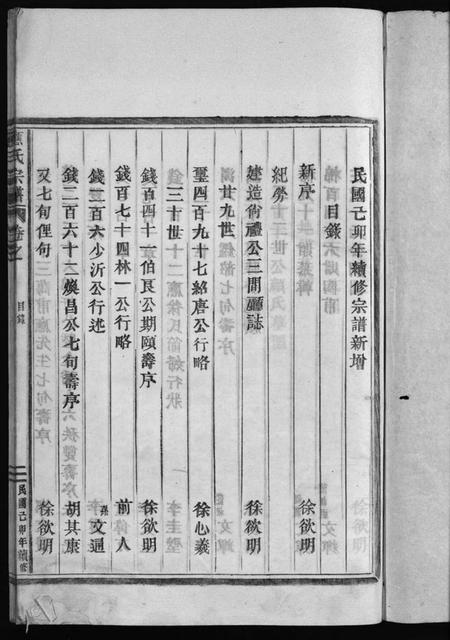 民國己卯年續修宗譜新增
目錄
新序 徐欲明
紀勞 徐欲明
建造尙禮公三間廳誌 徐欲明
廿九世
璽四百九十七紹唐公行略 徐心羲
三十世
錢百四十一伯良公期頤壽序 徐欲明
錢百七十四林一公行略 前人
錢二百六少沂公行述 孫文通
錢二百六十二煥昌公七旬壽序 胡其康
又七旬俚句 徐欲明
氏宗譜 卷之
目錄
民國己卯年續修